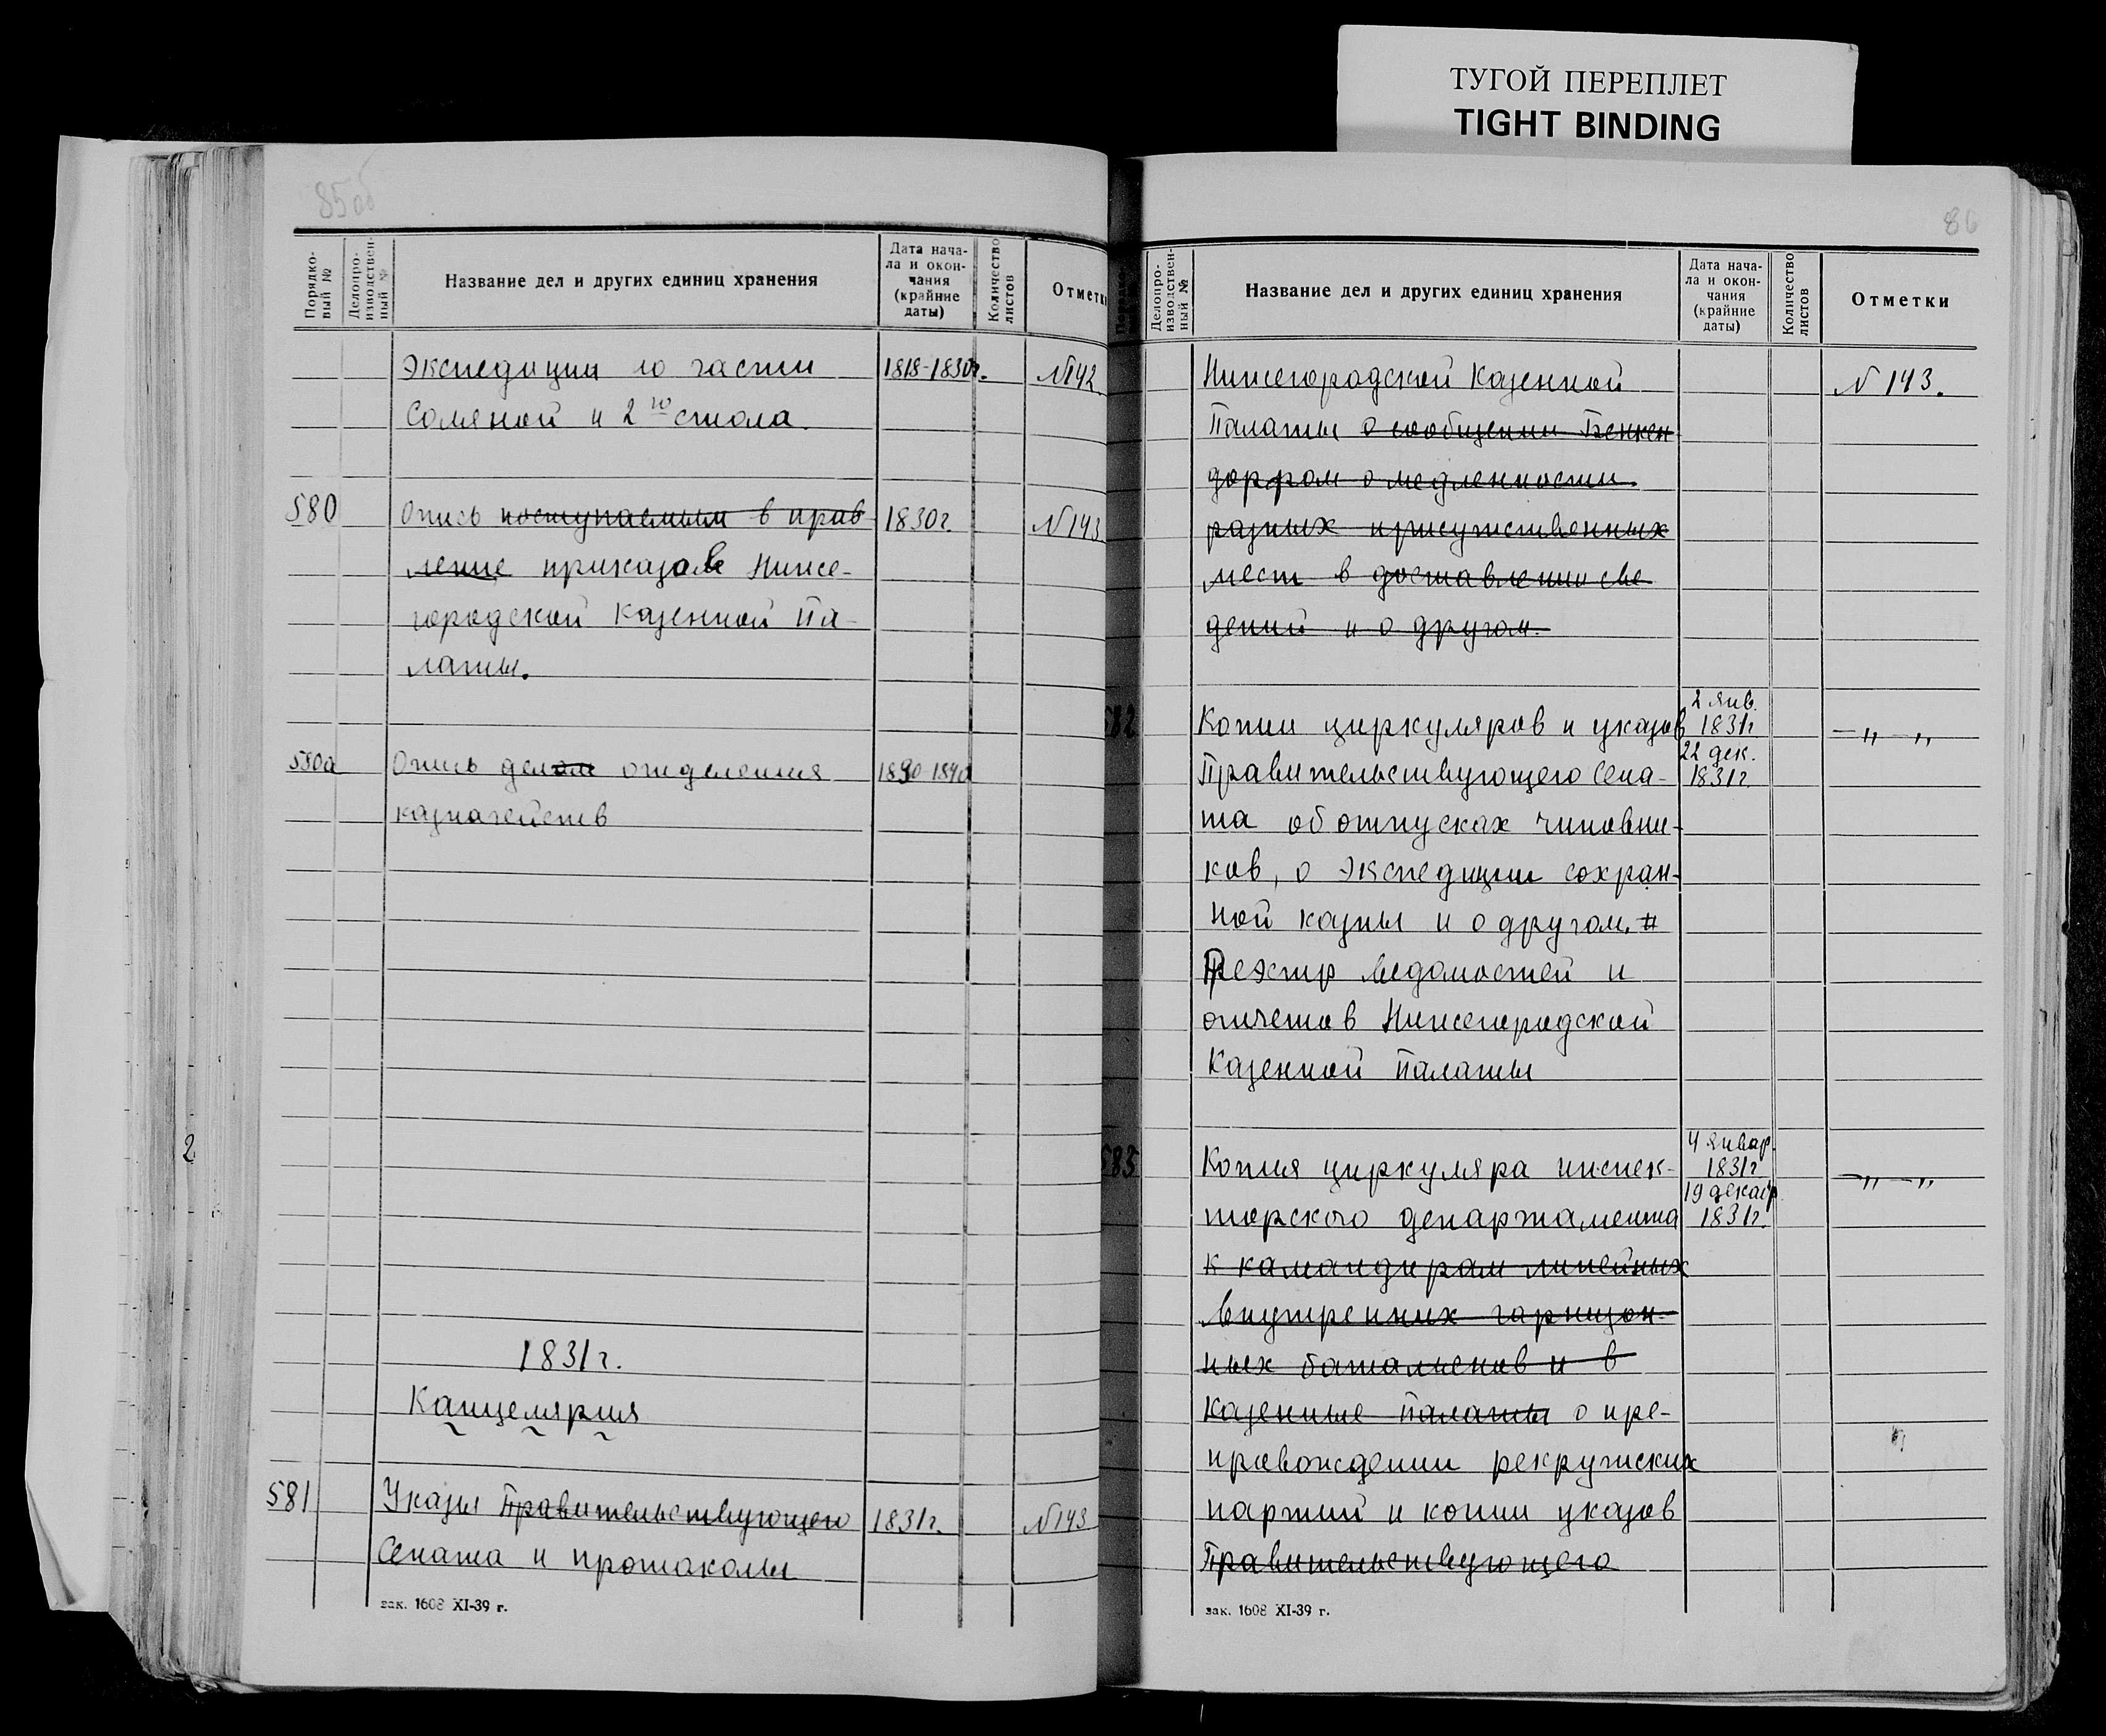 ТУГОЙ ПЕРЕПЛЕТ
TIGHT BINDING
85об
Порядко-
вый №
Делопро-
изводствен-
ный №
Название дел и других единиц хранения
Дата нача-
ла и окон-
чания
(крайние
даты)
Количество
листов
Отметки
Экспедиции по части 1818-1830г. №142
Соляной и 2го стола.
580 Опись поступаемым в прав- 1830г. №143
ление приказов Ниже-
городской Казенной Па-
латы.
580а Опись делам отделения 1830-1840
казначейств
2
1831г.
Канцелярия
581 Указы Правительствующего 1831г. №143
Сената и протоколы
зак. 1608 XI-39 г.
86
Делопро-
изводствен-
ный №
Название дел и других единиц хранения
Дата нача-
ла и окон-
чания
(крайние
даты)
Количество
листов
Отметки
Нижегородской Казенной №143.
Палаты о сообщении Бенкен
дорфом о медленности
разных присутственных
мест в доставлении све
дений и о другом.
2 янв.
582 Копии циркуляров и указов 1831г — „ — „
22 дек.
Правительствующего Сена- 1831г.
та об отпусках чиновни-
ков, о экспедиции сохран-
ной казны и о другом. и
Реэстр ведомостей и
отчетов Нижегородской
Казенной Палаты
4 январ.
583 Копия циркуляра инспек- 1831г — „ — „
19 декабр
торского департамента 1831г.
к командирам линейных
внутренних гарнизон-
ных батальенов и в
казенные палаты о пре-
правождении рекрутских
партий и копии указов
Правительствующего
зак. 1608 XI-39 г.